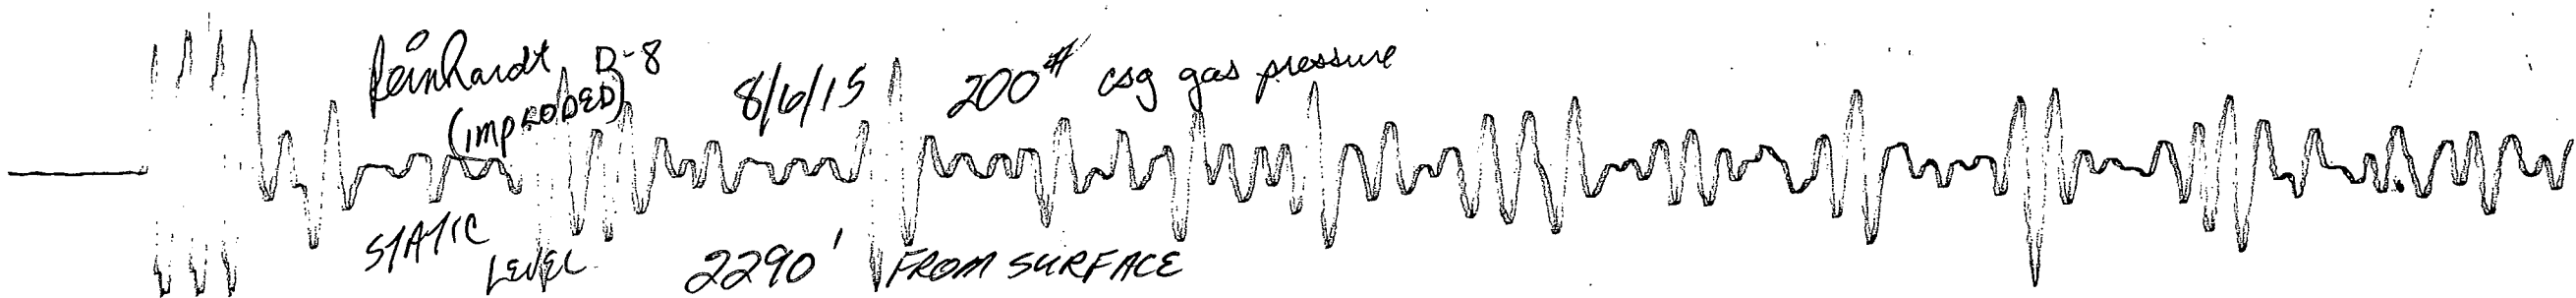 Reinhardt D-8
(IMPRODED)
8/6/15
200# csg gas pressure
STATIC
LEVEL
2290' FROM SURFACE